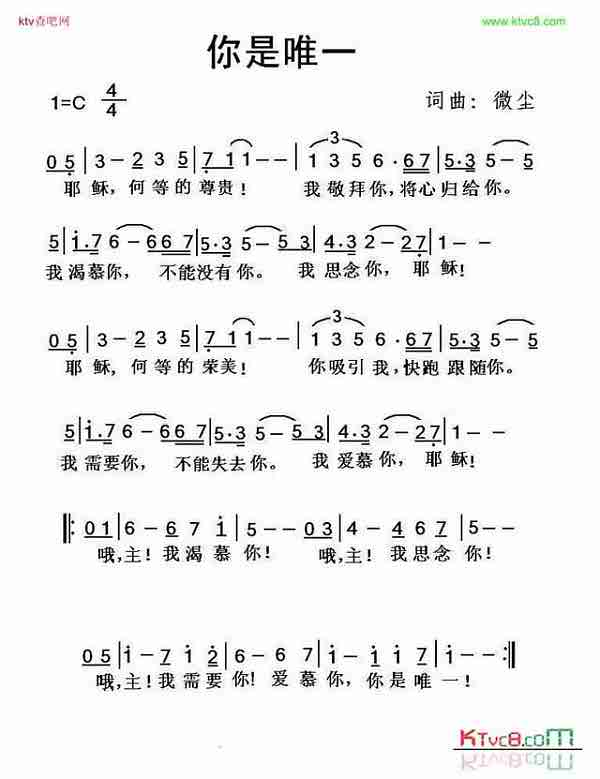 ktv查吧网
www.ktvc8.com
你是唯一
1=C 4/4
词曲：微尘
0 5 | 3 - 2 3 5 | 7 1 1 - - | 1 3 5 6 · 6 7 | 5 · 3 5 - 5
耶 稣，何 等 的 尊 贵！ 我 敬 拜 你，将 心 归 给 你。
5 | 1 · 7 6 - 6 6 7 | 5 · 3 5 - 5 | 4 · 3 2 - 2 7 | 1 - -
我 渴 慕 你， 不 能 没 有 你。 我 思 念 你， 耶 稣！
0 5 | 3 - 2 3 5 | 7 1 1 - - | 1 3 5 6 · 6 7 | 5 · 3 5 - 5
耶 稣，何 等 的 荣 美！ 你 吸 引 我，快 跑 跟 随 你。
5 | 1 · 7 6 - 6 6 7 | 5 · 3 2 - 2 | 4 · 3 2 - 2 7 | 1 - -
我 需 要 你， 不 能 失 去 你。 我 爱 慕 你， 耶 稣！
‖: 0 1 | 6 - 6 7 i | 5 - - 0 3 | 4 - 4 6 7 | 5 - -
哦，主！我 渴 慕 你！ 哦，主！ 我 思 念 你！
0 5 | i - 7 i 2 | 6 - 6 6 7 | i - i i 7 | i - - :‖
哦，主！我 需 要 你！ 爱 慕 你， 你 是 唯 一！
KTvc8.com